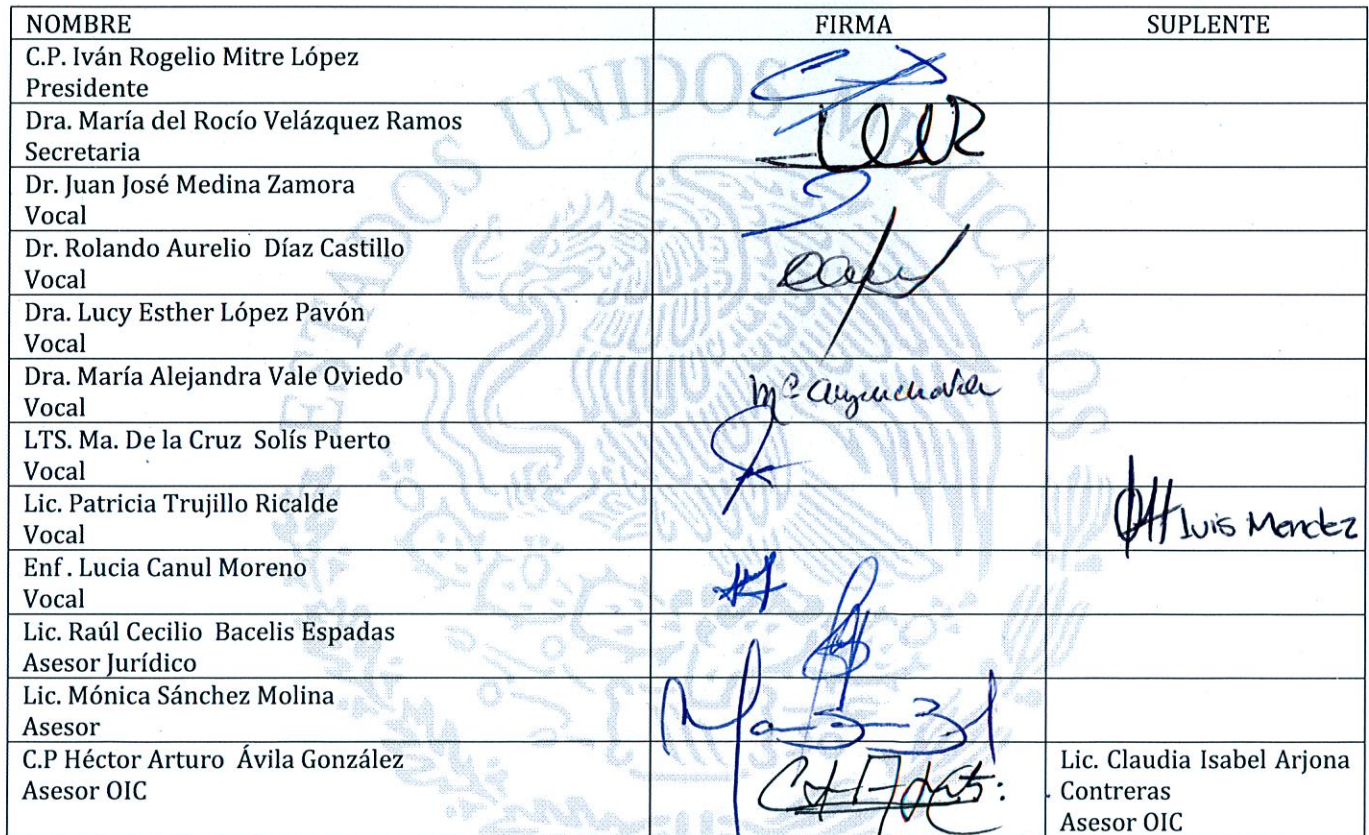 NOMBRE FIRMA SUPLENTE
C.P. Iván Rogelio Mitre López
Presidente
Dra. María del Rocío Velázquez Ramos
Secretaria
Dr. Juan José Medina Zamora
Vocal
Dr. Rolando Aurelio Díaz Castillo
Vocal
Dra. Lucy Esther López Pavón
Vocal
Dra. María Alejandra Vale Oviedo
Vocal
LTS. Ma. De la Cruz Solís Puerto
Vocal
Lic. Patricia Trujillo Ricalde
Vocal
Luis Mendez
Enf . Lucia Canul Moreno
Vocal
Lic. Raúl Cecilio Bacelis Espadas
Asesor Jurídico
Lic. Mónica Sánchez Molina
Asesor
C.P Héctor Arturo Ávila González
Asesor OIC
Lic. Claudia Isabel Arjona
Contreras
Asesor OIC
ESTADOS UNIDOS MEXICANOS